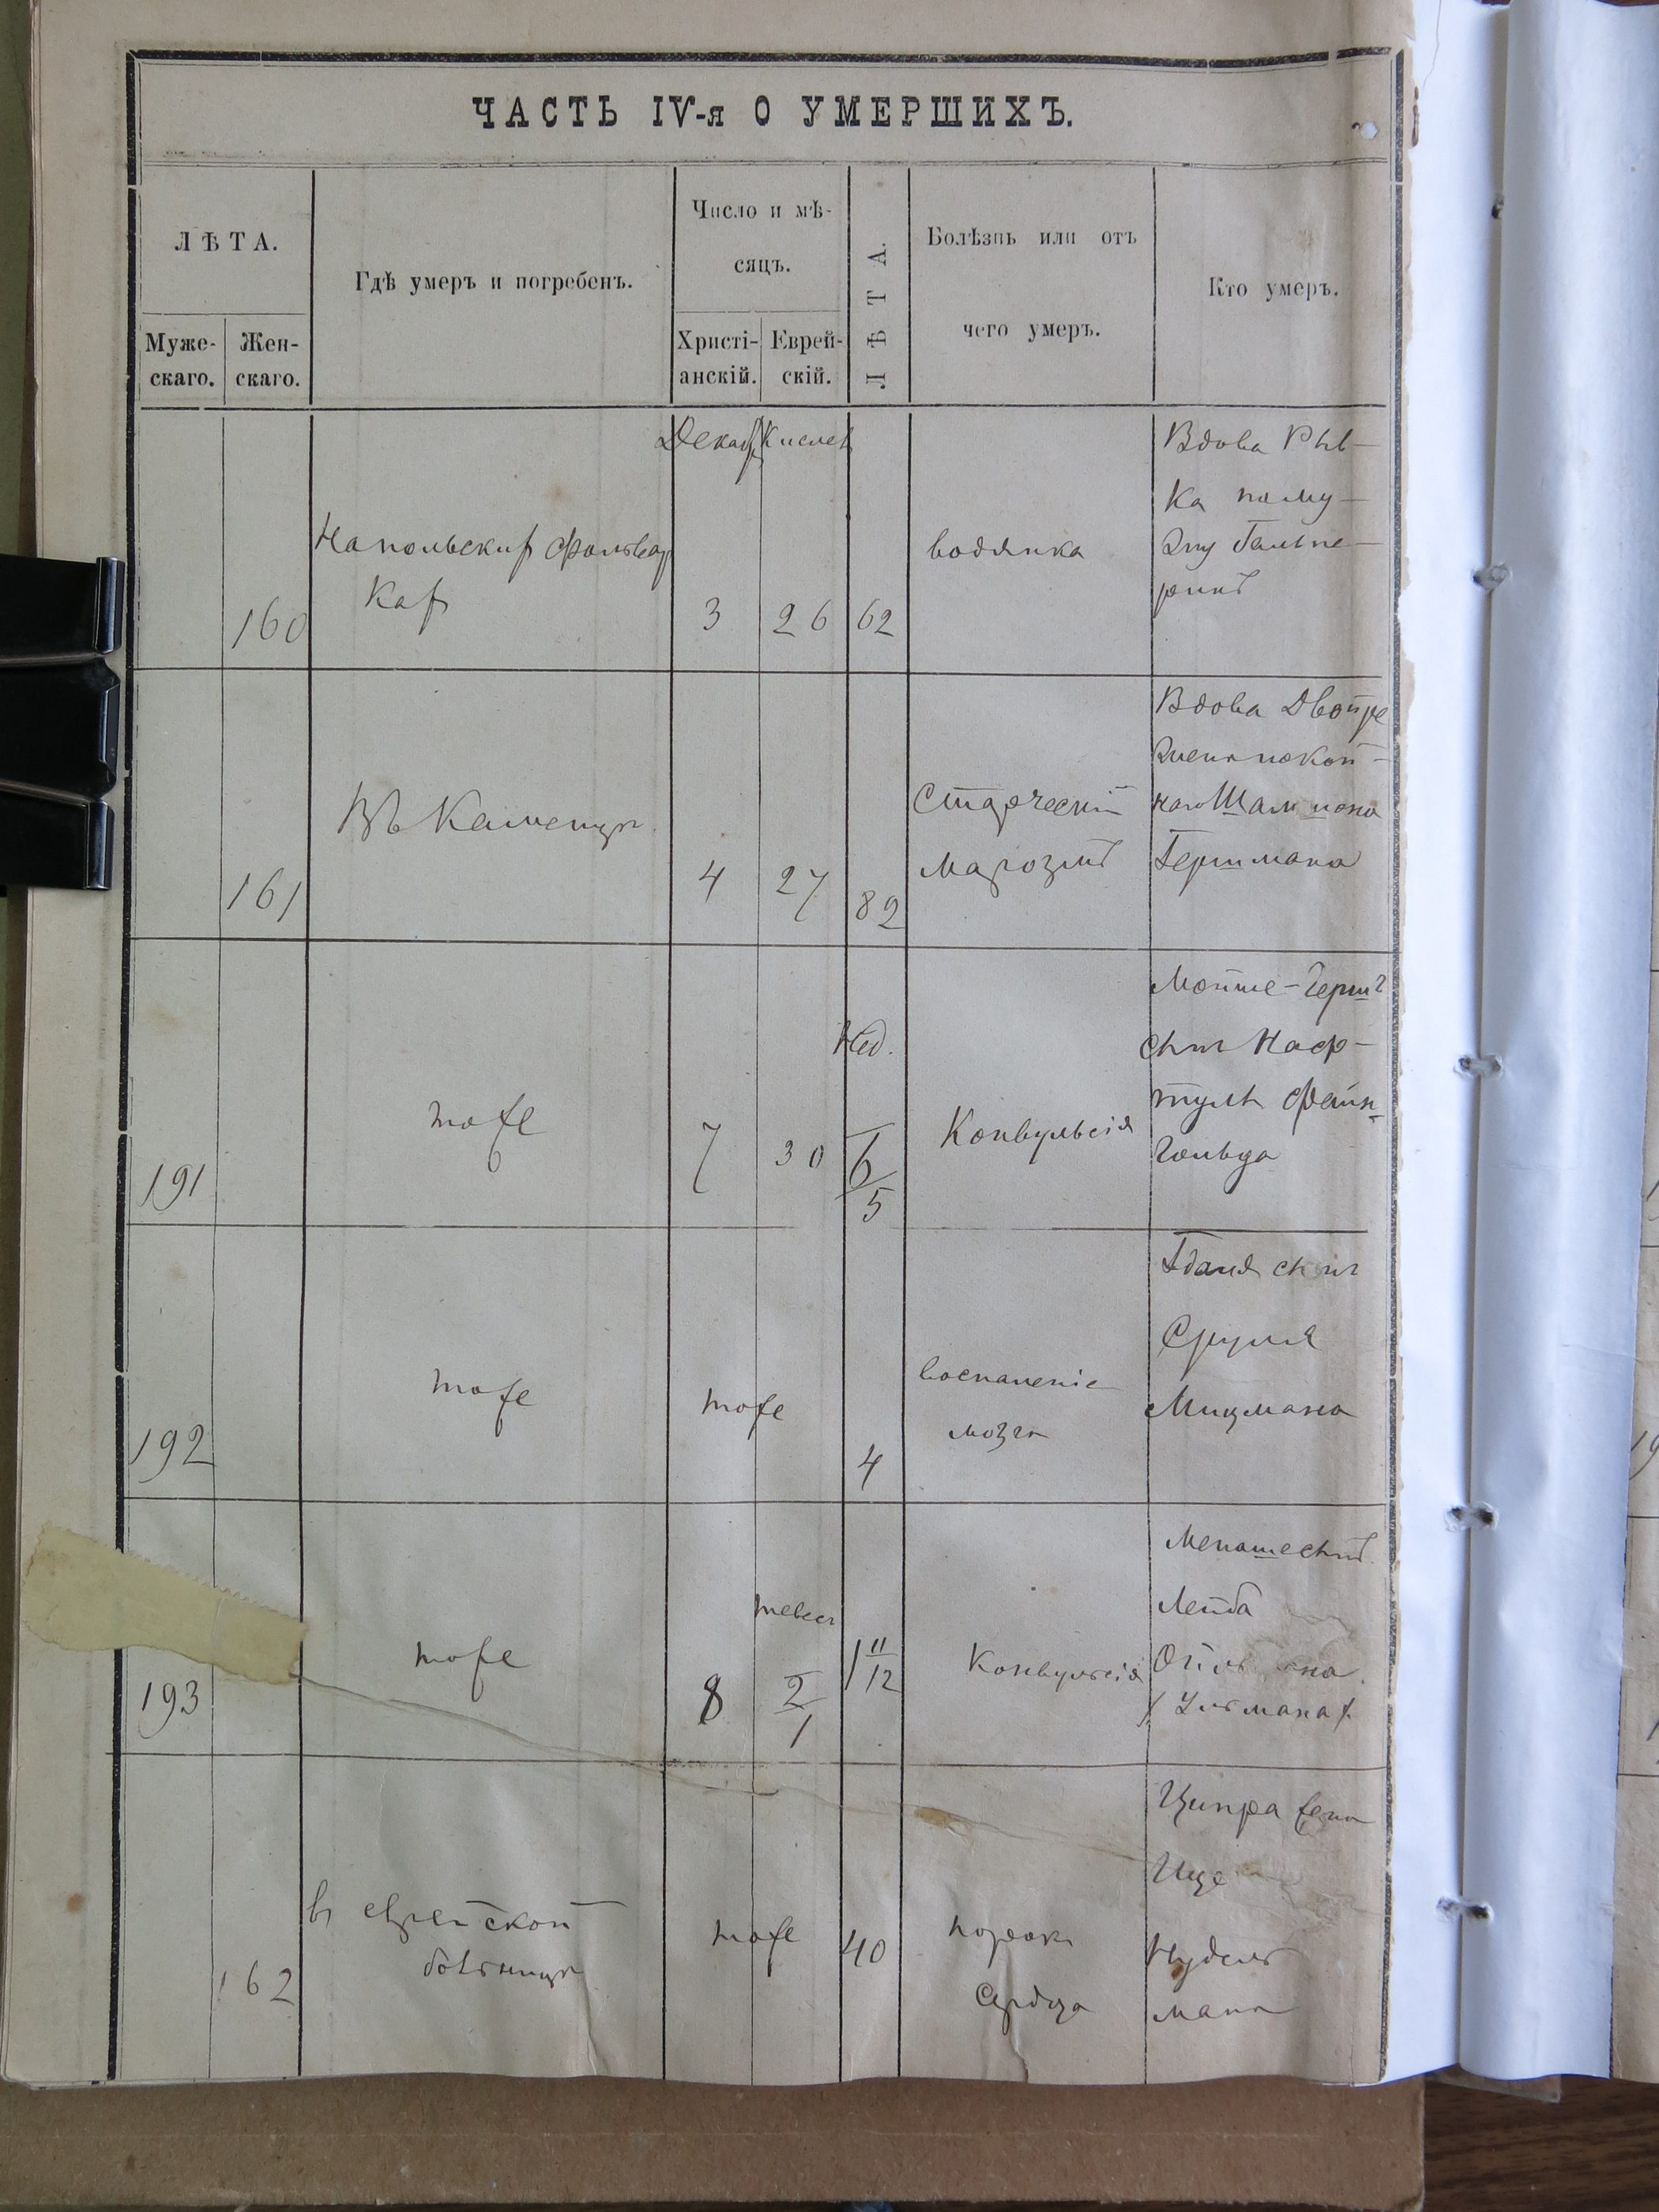 ЧАСТЬ IV-я О УМЕРШИХЪ.
ЛѢТА.
Муже-
скаго.
Жен-
скаго.
Гдѣ умеръ и погребенъ.
Число и мѣ-
сяцъ.
Христі-
анскій.
Еврей-
скій.
ЛѢТА.
Болѣзнь или отъ
чего умеръ.
Кто умеръ.
160
фольвар
ках
Декабр
3
Кислев
26
62
водянка
Вдова Рив-
ка по му-
жу Гальпе-
ринъ
161
Въ Каменцѣ
4
27
82
Старческій
маразмъ
Вдова Двойре
жена покой-
наго
Гершмана
191
тоже
7
30
Нед.
6
5
Конвульсія
Мойше-Герш
сынъ Наф-
тулы Файн-
гольда
192
тоже
тоже
4
воспаленіе
мозга
сынъ
Сруля
Мицмана
193
тоже
8
тевес
2
1
1 11/12
Конвульсія
Менаше сынъ
Лейба
/Ульмана/
162
в еврейской
больницѣ
тоже
40
порокъ
сердца
Ципра жена
Ице
Нудель
мана